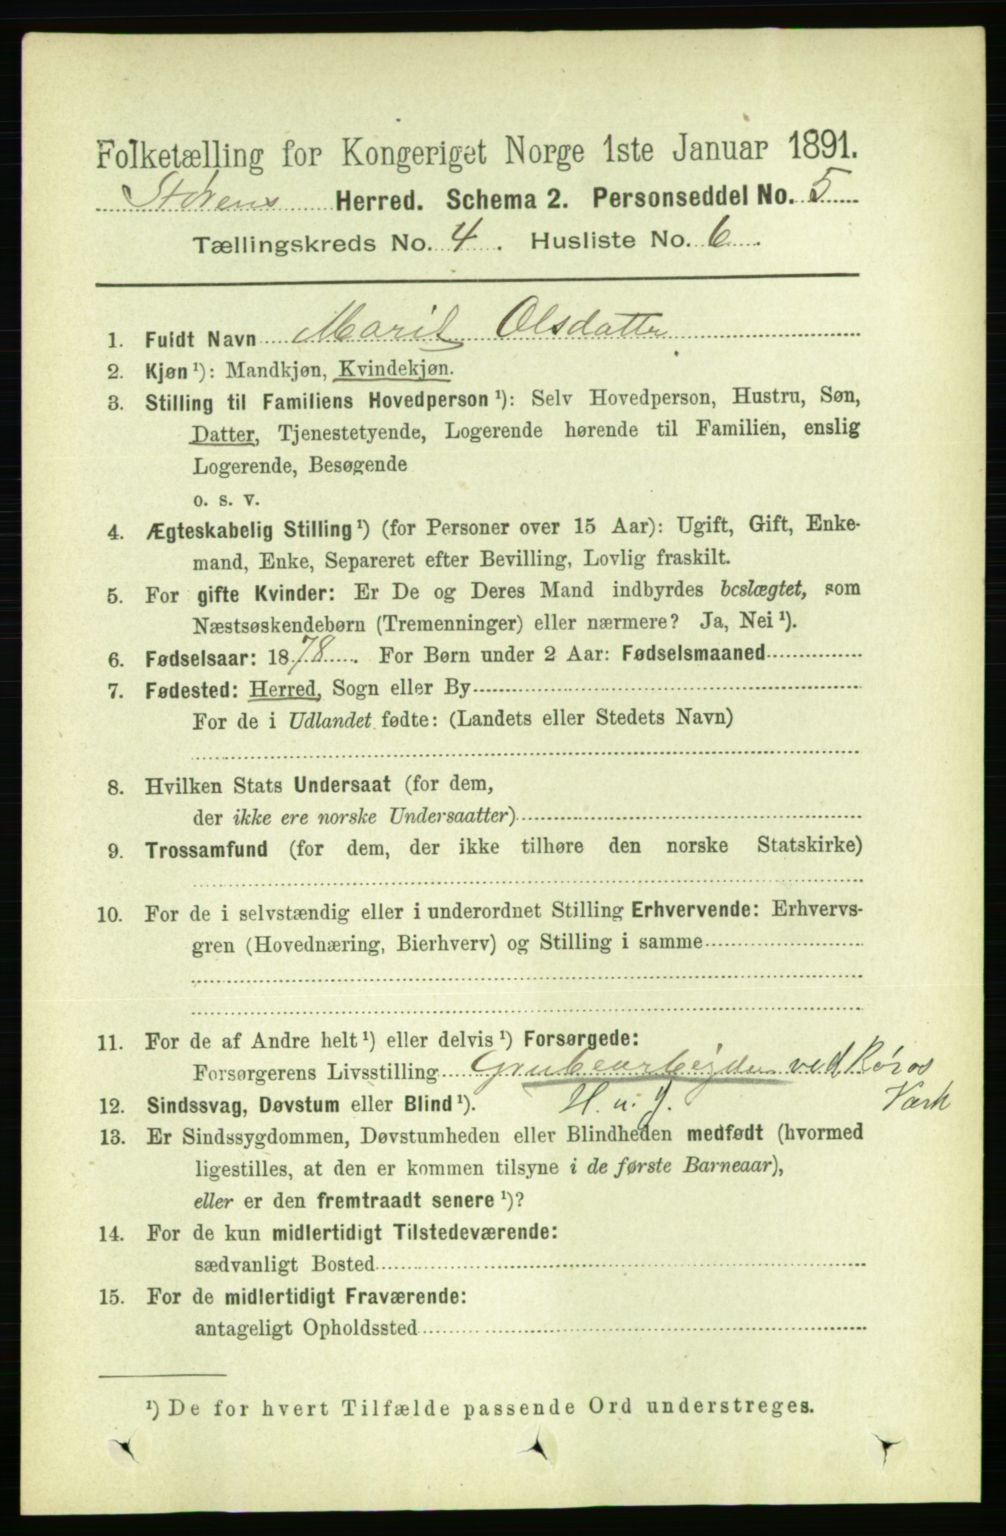 Folketælling for Kongeriget Norge 1ste Januar 1891.
Størens Herred. Schema 2. Personseddel No. 5
Tællingskreds No. 4. Husliste No. 6.
1. Fuldt Navn Marit Olsdatter
2. Kjøn ¹): Mandkjøn, Kvindekjøn.
3. Stilling til Familiens Hovedperson ¹): Selv Hovedperson, Hustru, Søn,
Datter, Tjenestetyende, Logerende hørende til Familien, enslig
Logerende, Besøgende
o. s. v.
4. Ægteskabelig Stilling ¹) (for Personer over 15 Aar): Ugift, Gift, Enke-
mand, Enke, Separeret efter Bevilling, Lovlig fraskilt.
5. For gifte Kvinder: Er De og Deres Mand indbyrdes beslægtet, som
Næstsøskendebørn (Tremenninger) eller nærmere? Ja, Nei ¹).
6. Fødselsaar: 1878. For Børn under 2 Aar: Fødselsmaaned
7. Fødested: Herred, Sogn eller By
For de i Udlandet fødte: (Landets eller Stedets Navn)
8. Hvilken Stats Undersaat (for dem,
der ikke ere norske Undersaatter)
9. Trossamfund (for dem, der ikke tilhøre den norske Statskirke)
10. For de i selvstændig eller i underordnet Stilling Erhvervende: Erhvervs-
gren (Hovednæring, Bierhverv) og Stilling i samme
11. For de af Andre helt ¹) eller delvis ¹) Forsørgede:
Forsørgerens Livsstilling Grubearbejder ved Røros
12. Sindssvag, Døvstum eller Blind ¹). H. u. J. Værk
13. Er Sindssygdommen, Døvstumheden eller Blindheden medfødt (hvormed
ligestilles, at den er kommen tilsyne i de første Barneaar),
eller er den fremtraadt senere ¹)?
14. For de kun midlertidigt Tilstedeværende:
sædvanligt Bosted
15. For de midlertidigt Fraværende:
antageligt Opholdssted
¹) De for hvert Tilfælde passende Ord understreges.